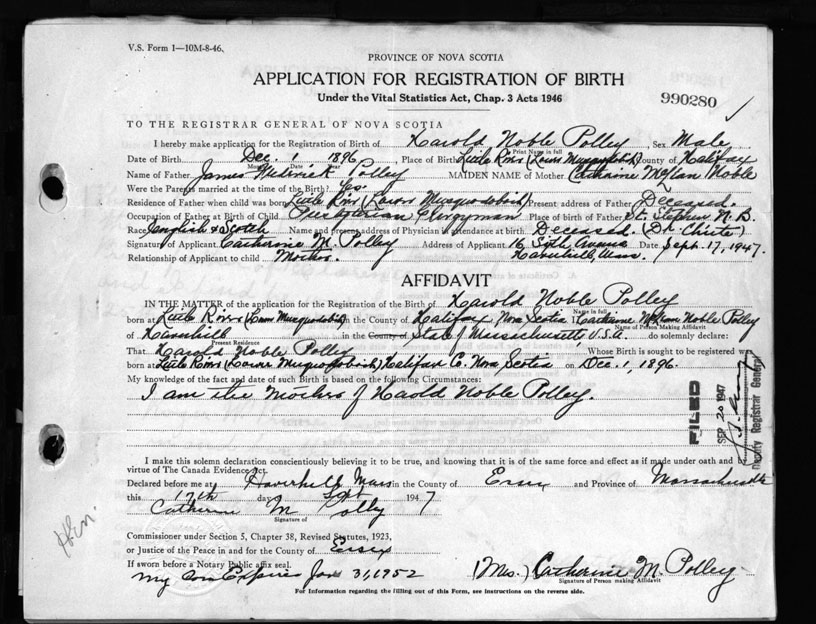 V.S. Form 1—10M-8-46.
PROVINCE OF NOVA SCOTIA
APPLICATION FOR REGISTRATION OF BIRTH
Under the Vital Statistics Act, Chap. 3 Acts 1946
990280
TO THE REGISTRAR GENERAL OF NOVA SCOTIA
I hereby make application for the Registration of Birth of Harold Noble Polley Sex Male
Print Name in full
Date of Birth Dec. 1 1896, Place of Birth Little River (Lower Musquodoboit) County of Halifax
Date Year
Name of Father James Frederick Polley MAIDEN NAME of Mother Catherine McLean Noble
Were the Parents married at the time of the Birth? Yes.
Residence of Father when child was born Little River (Lower Musquodoboit) Present address of Father Deceased.
Occupation of Father at Birth of Child Presbyterian Clergyman Place of birth of Father St. Stephen N.B.
Race English & Scotch Name and present address of Physician in attendance at birth Deceased. (Dr. Christie)
Signature of Applicant Catherine M. Polley Address of Applicant 16 Sixth Avenue Date Sept. 17, 1947.
Relationship of Applicant to child Mother. Haverhill, Mass.
AFFIDAVIT
IN THE MATTER of the application for the Registration of the Birth of Harold Noble Polley
Name in full
born at Little River (Lower Musquodoboit) in the County of Halifax, Nova Scotia I Catherine McLean Noble Polley
Name of Person Making Affidavit
of Haverhill in the County of State of Massachusetts U.S.A. do solemnly declare:
Present Residence
That Harold Noble Polley Whose Birth is sought to be registered was
born at Little River (Lower Musquodoboit) Halifax Co. Nova Scotia on Dec. 1, 1896.
My knowledge of the fact and date of such Birth is based on the following Circumstances:
I am the mother of Harold Noble Polley.
FILED
SEP 20 1947
Deputy Registrar General
I make this solemn declaration conscientiously believing it to be true, and knowing that it is of the same force and effect as if made under oath and by
virtue of The Canada Evidence Act.
Declared before me at Haverhill Mass in the County of Essex and Province of Massachusetts
this 17th day Sept 1947
Catherine M Polley
Signature of
Commissioner under Section 5, Chapter 38, Revised Statutes, 1923,
or Justice of the Peace in and for the County of Essex
If sworn before a Notary Public affix seal.
My Com Expires Jan 31, 1952 (Mrs.) Catherine M. Polley.
Signature of Person making Affidavit
For Information regarding the filling out of this Form, see Instructions on the reverse side.